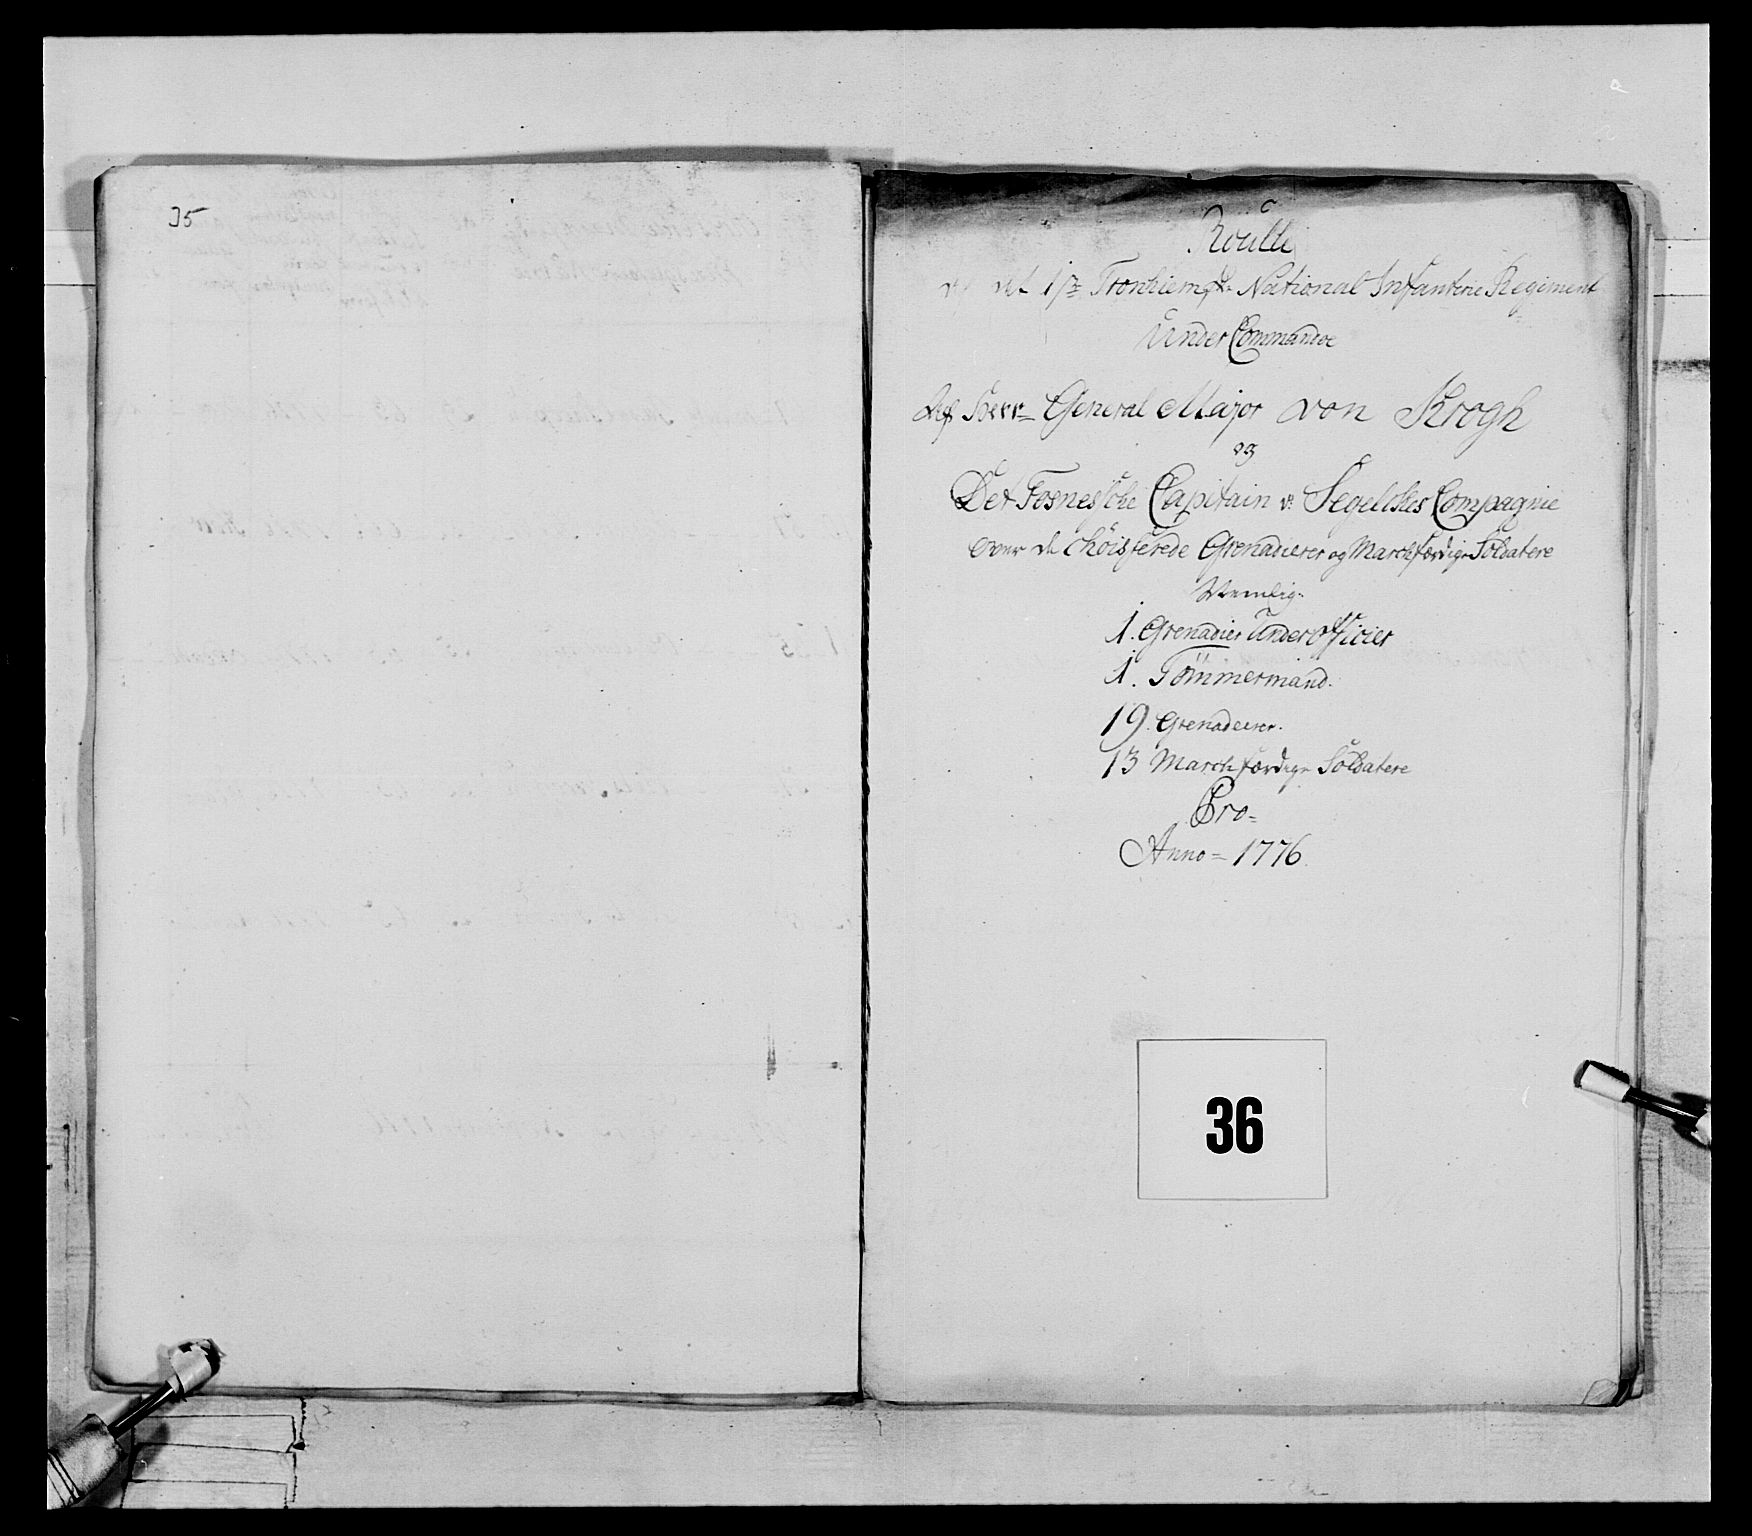 35
Roulle
det 1ste Tronhiemske National Infanterie Regiment
Under Commandoe
Af Herr General Major von Krogh
og
Det Fosnesche Capitain v: Segelckes Compagnie
Over de choisferede Grenaderer og Marchfærdige Soldatere
Nemlig
1. Grenadier Underofficier
1. Tömmermand.
19. Grenaderer.
13 Marchfærdige Soldatere
Pro
Anno = 1776
36